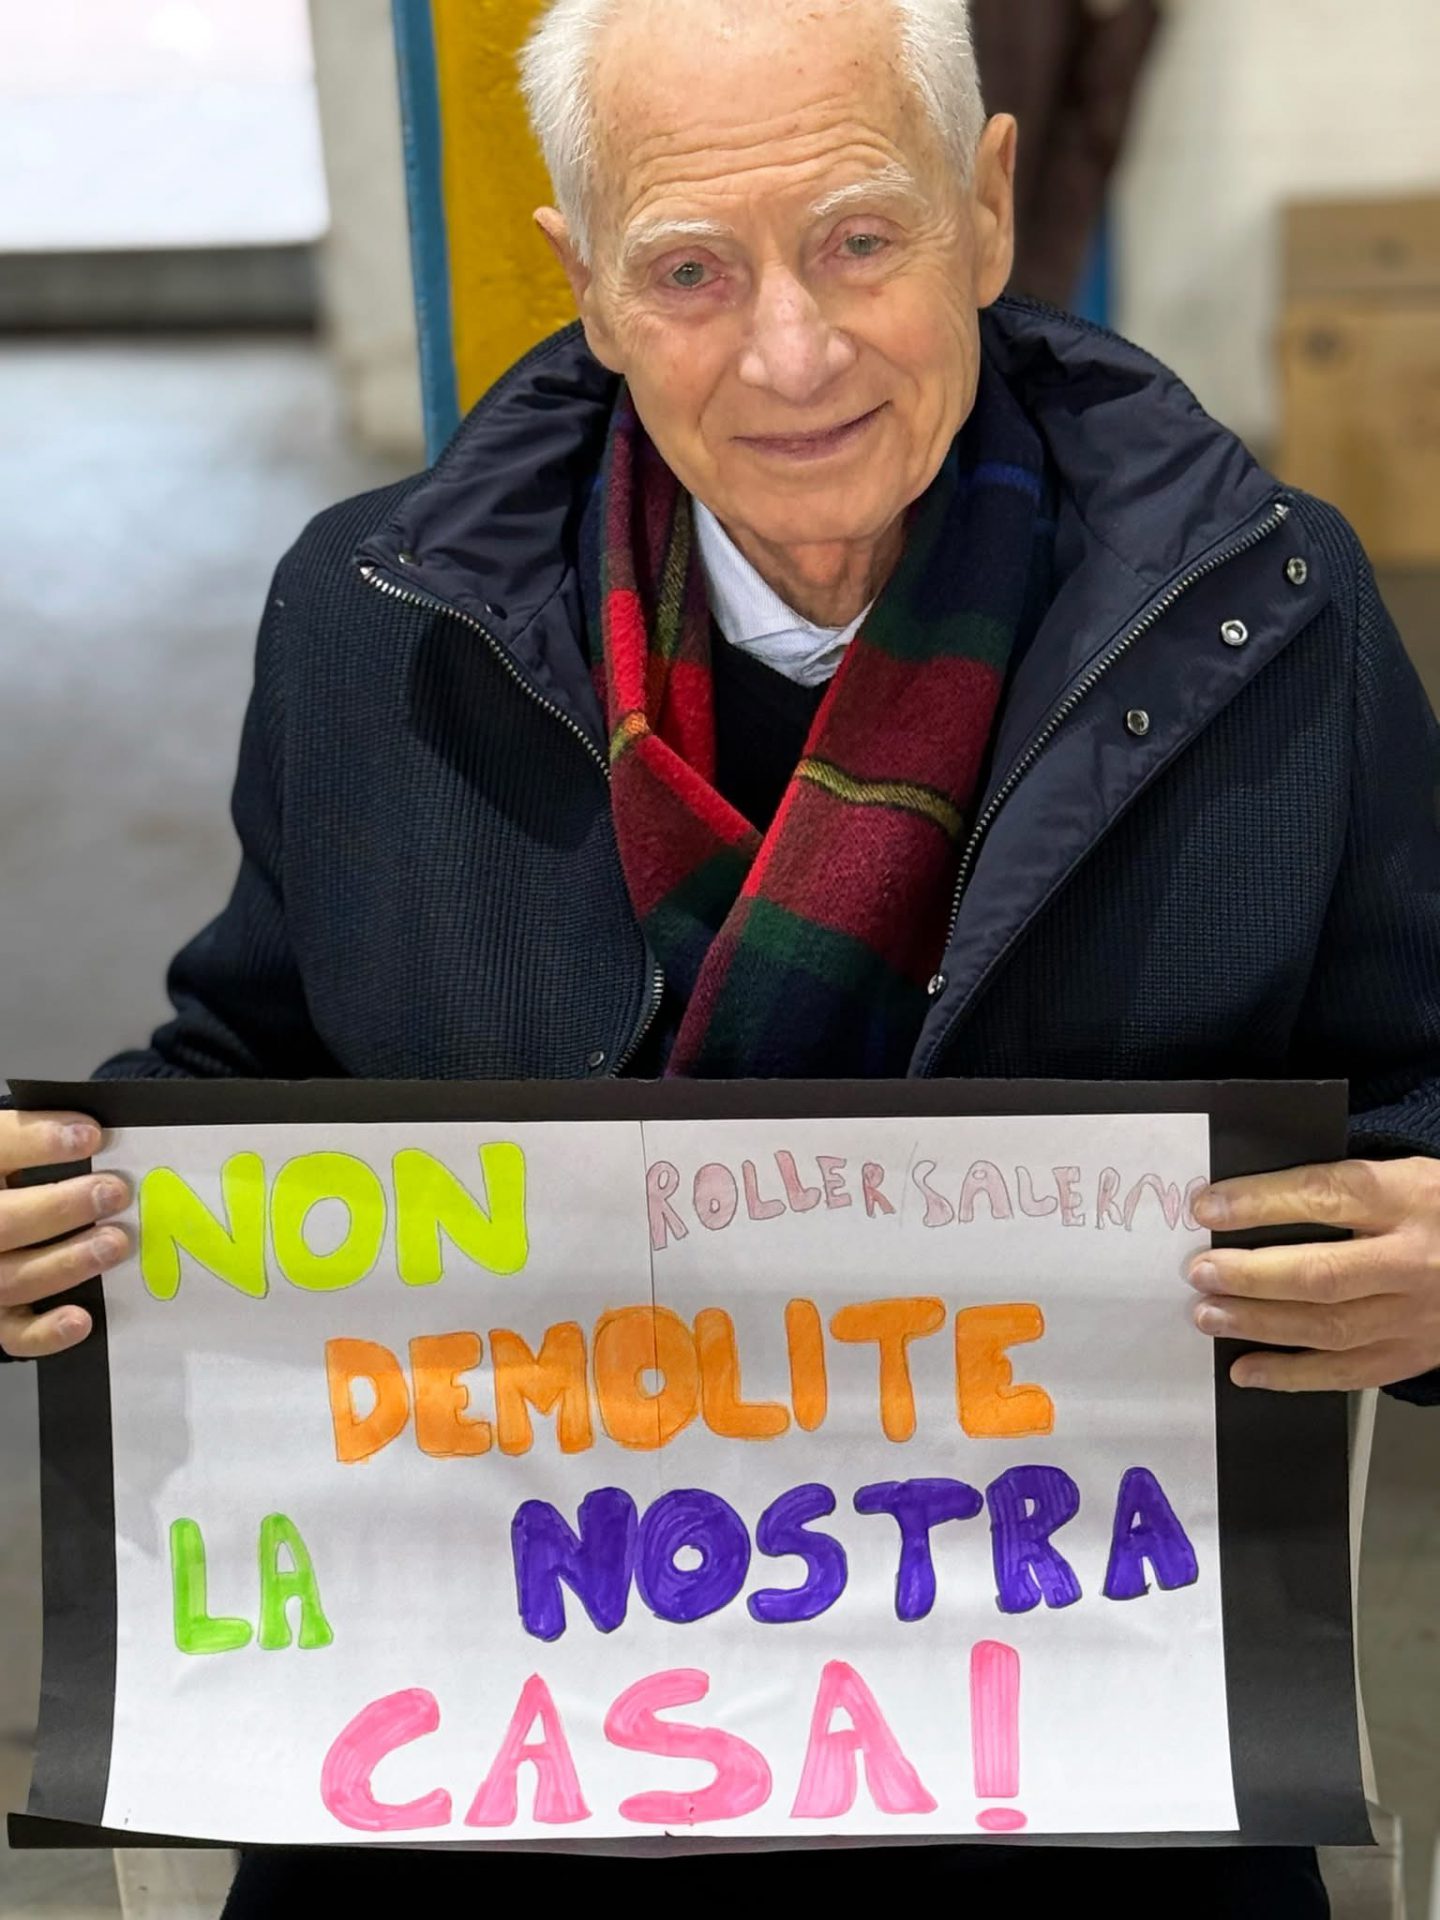 NON ROLLER/SALERNO
DEMOLITE
LA NOSTRA
CASA!